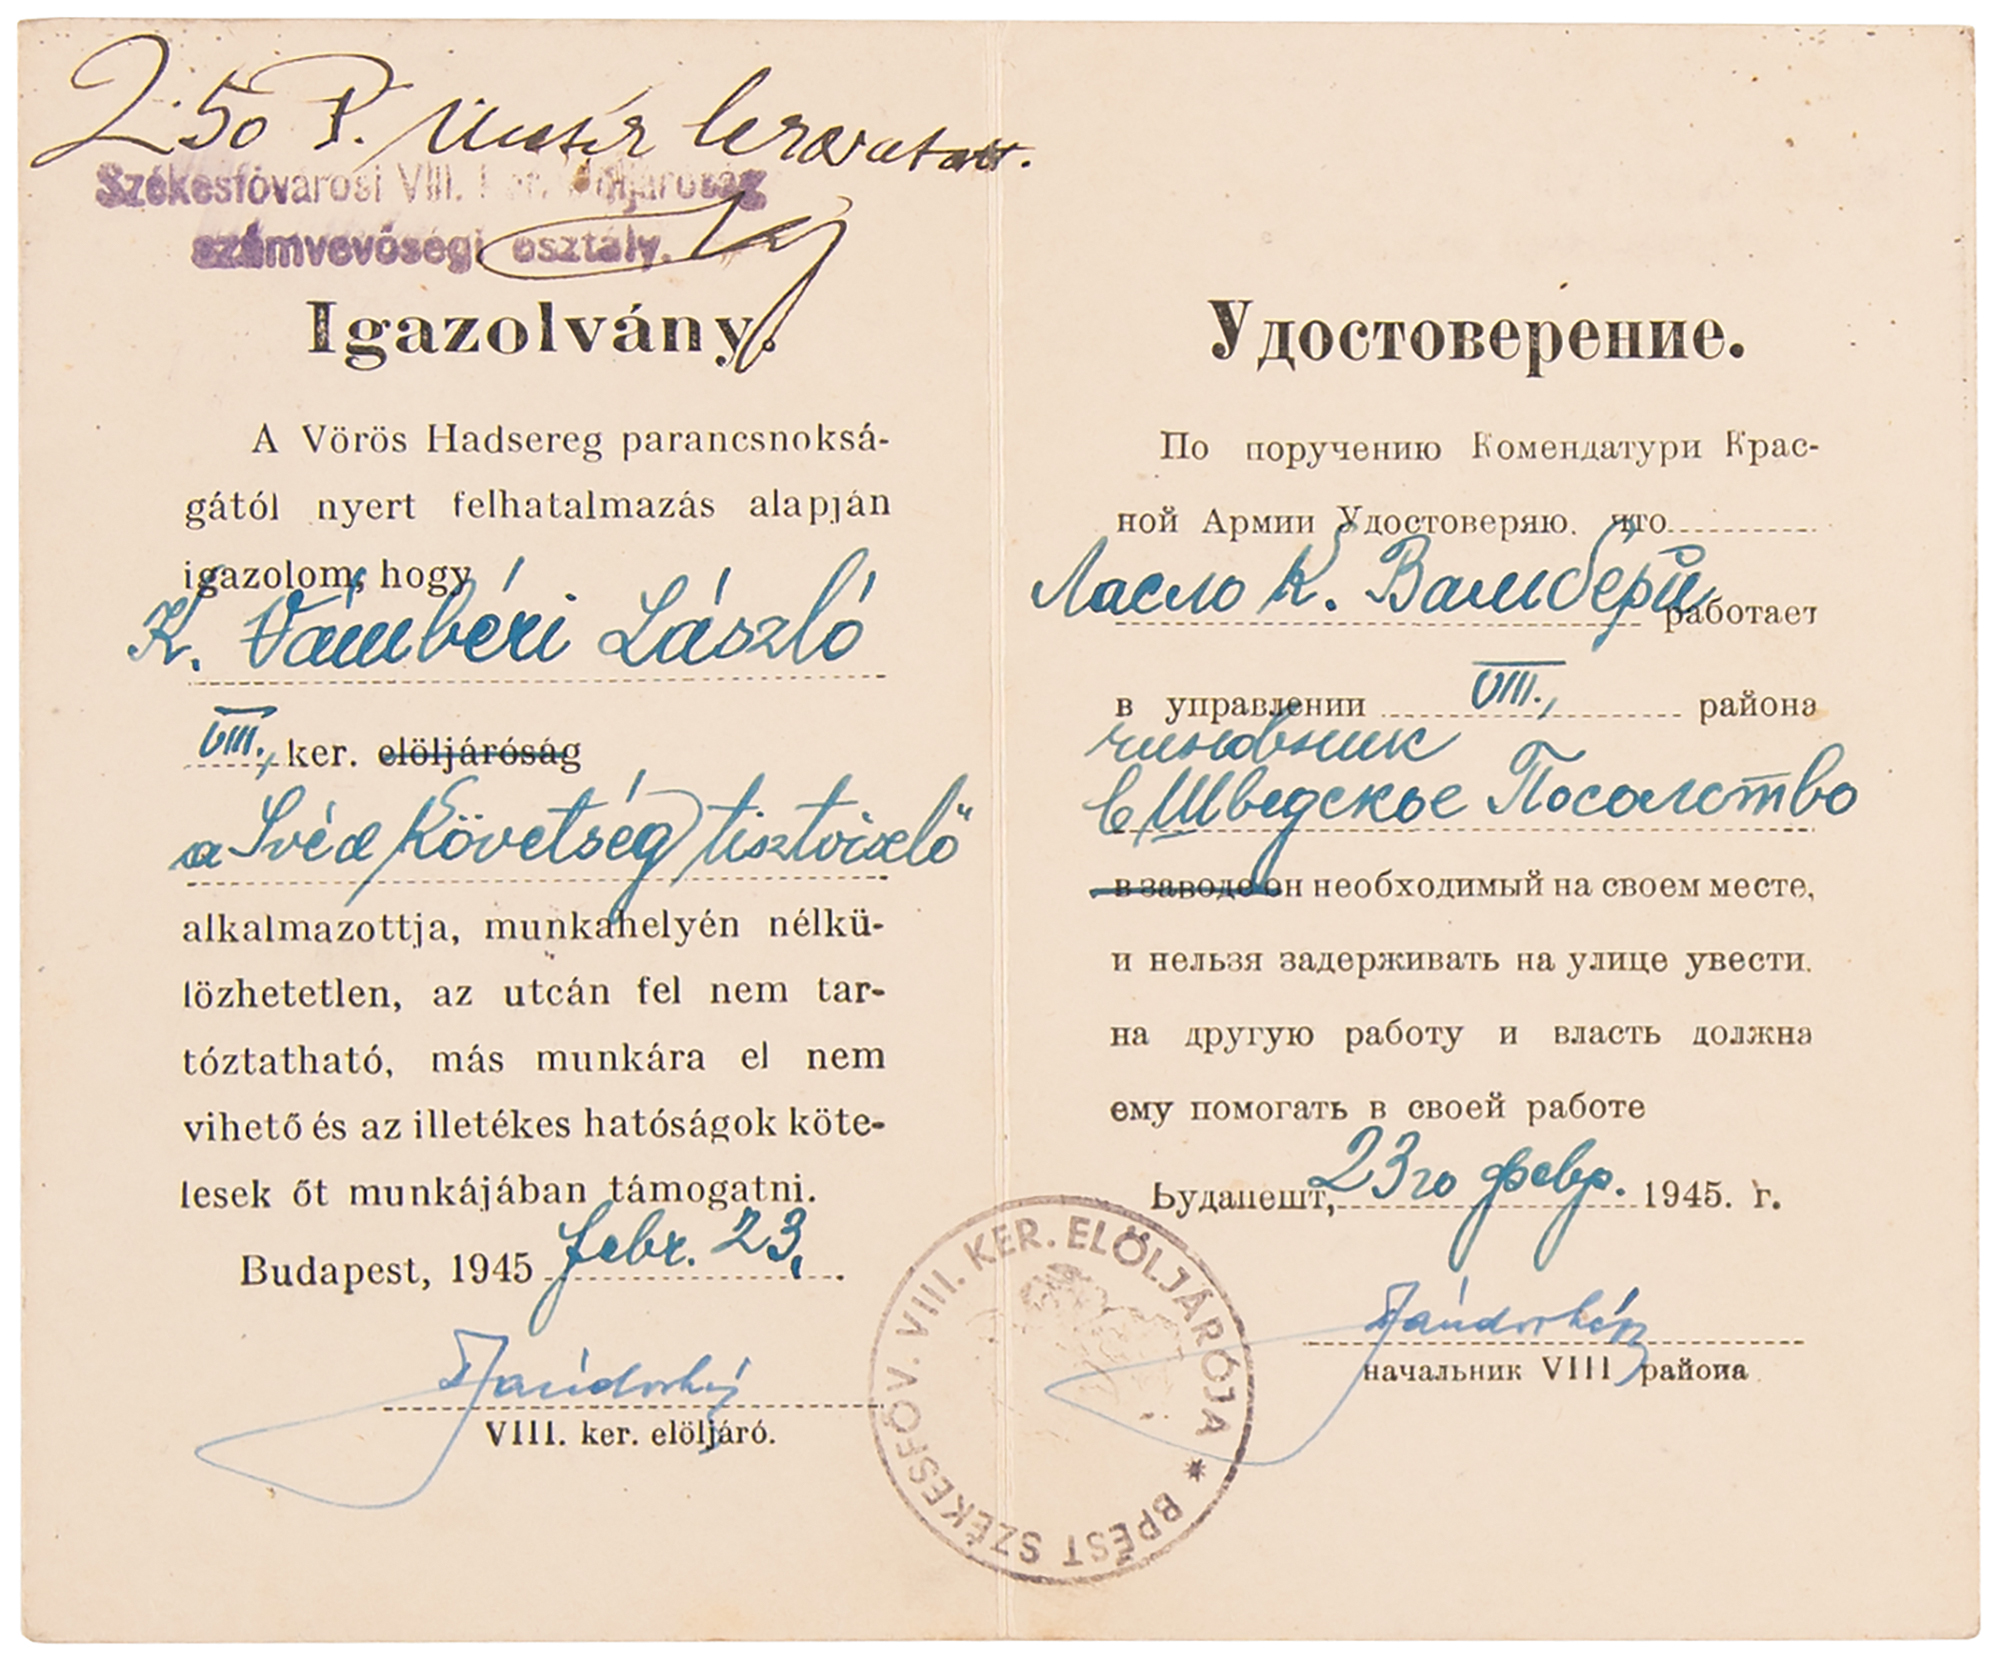 250 P.
Székesfővárosi VIII. ker. Elöljáróság
számvevőségi osztály.
Igazolvány.
A Vörös Hadsereg parancsnoksá-
gától nyert felhatalmazás alapján
igazolom, hogy
K. Vámbéri László
VIII., ker. elöljáróság
a Svéd Követség tisztviselő
alkalmazottja, munkahelyén nélkü-
lözhetetlen, az utcán fel nem tar-
tóztatható, más munkára el nem
vihető és az illetékes hatóságok köte-
lesek őt munkájában támogatni.
Budapest, 1945 febr. 23.
VIII. ker. elöljáró.
BPEST SZÉKESFŐV. VIII. KER. ELÖLJÁRÓJA *
Удостоверение.
По поручению Комендатури Крас-
ной Армии Удостоверяю. что
Ласло К. Вамбери работает
в управлении VIII., района
чиновник
в Шведское Посольство
в заводе он необходимый на своем месте,
и нельзя задерживать на улице увести.
на другую работу и власть должна
ему помогать в своей работе
Будапешт, 23го февр. 1945. г.
начальник VIII района